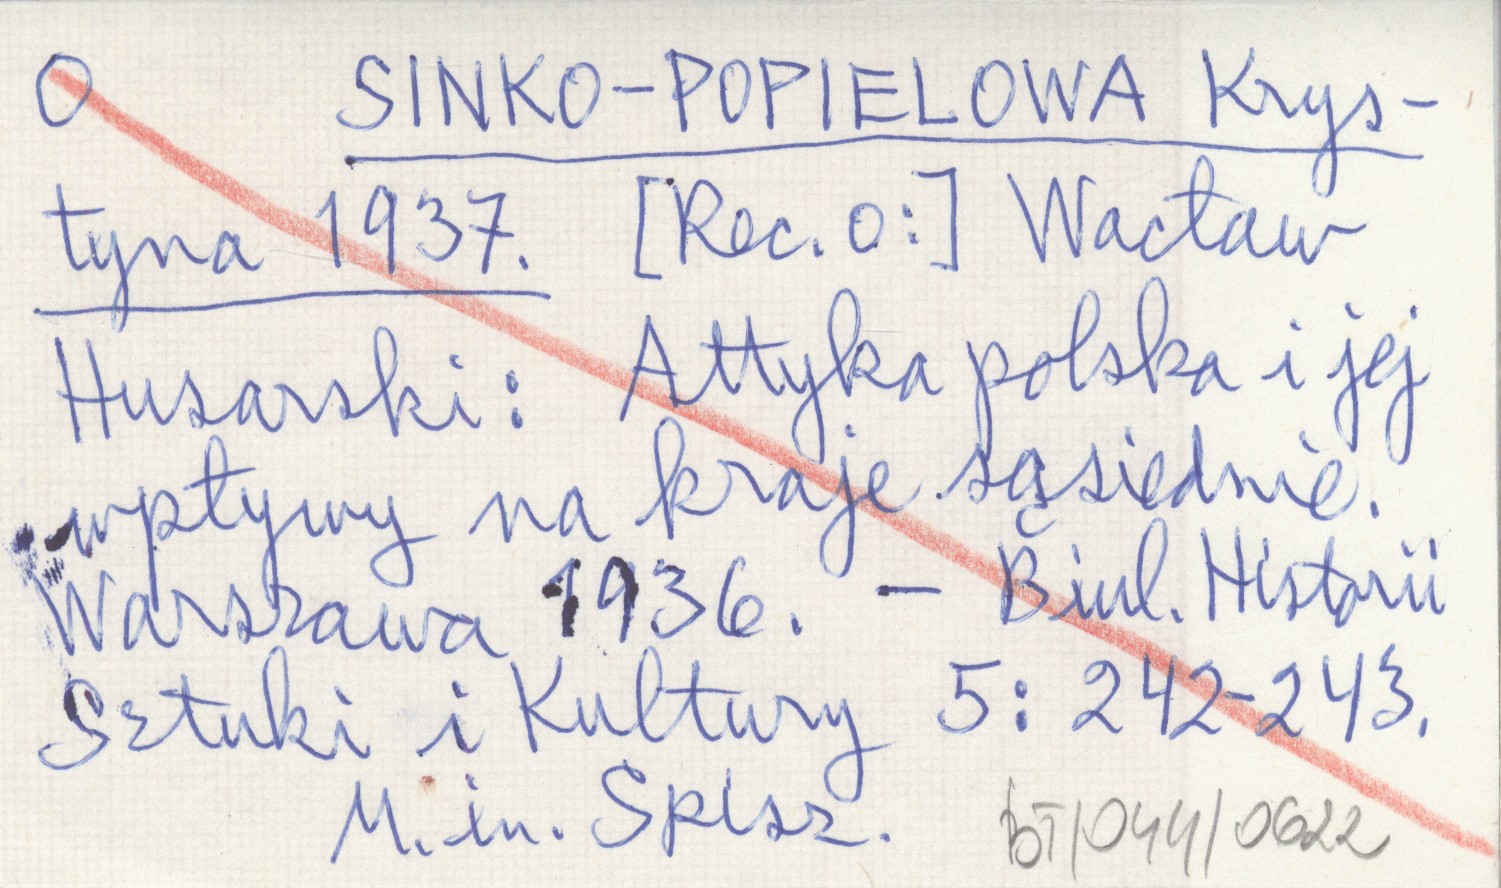 O SINKO-POPIELOWA Krys-
tyna 1937. [Rec. o:] Wacław
Husarski: Attyka polska i jej
wpływy na kraje sąsiednie.
Warszawa 1936. – Biul. Historii
Sztuki i Kultury 5: 242-243.
M.in. Spisz.
BT/044/0622